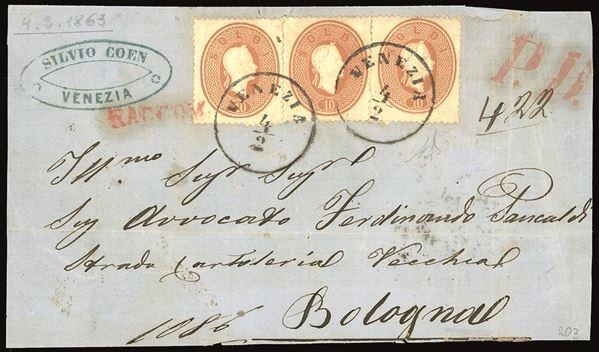 4.2.1863
SILVIO COEN
VENEZIA
RACCOM.
SOLDI SOLDI SOLDI
10 10 10
VENEZIA
4
2
VENEZIA
4
2
P.D.
422
Ill.mo Sig.r Sig.r
Sig Avvocato Ferdinando Pancaldi
Strada Cartoleria Vecchia
1086 Bologna
203